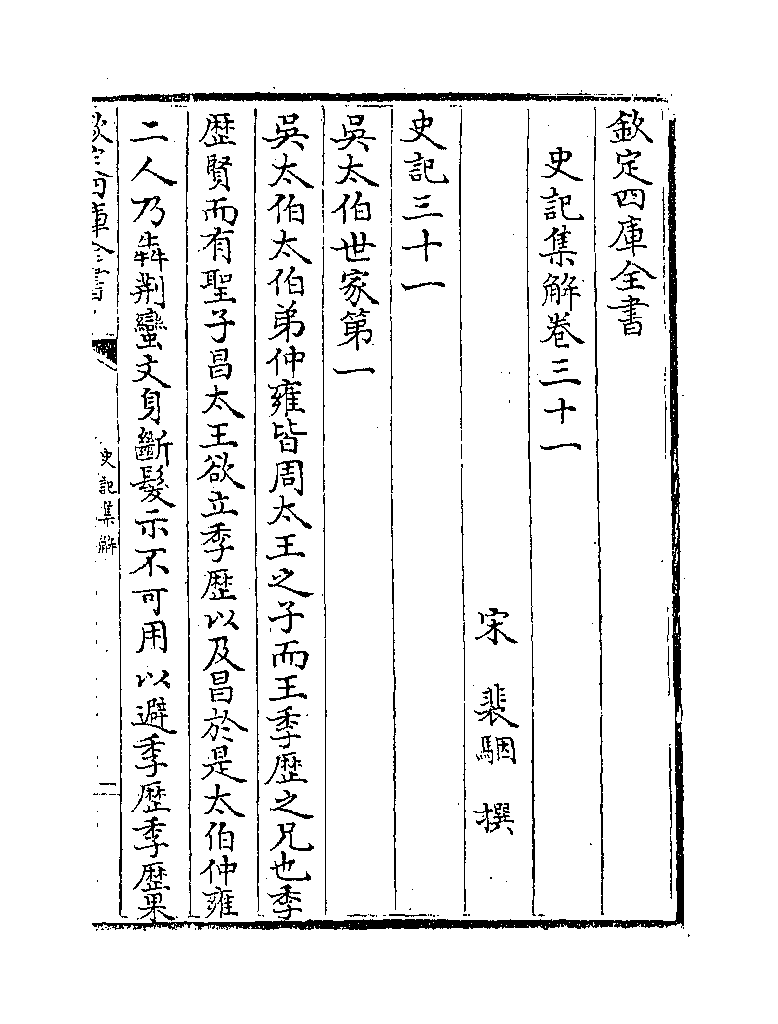 欽定四庫全書
史記集解卷三十一
宋 裴駰 撰
史記三十一
吳太伯世家第一
吳太伯太伯弟仲雍皆周太王之子而王季歷之兄也季
歷賢而有聖子昌太王欲立季歷以及昌於是太伯仲雍
二人乃犇荆蠻文身斷髮示不可用以避季歷季歷果
欽定四庫全書
史記集解
一